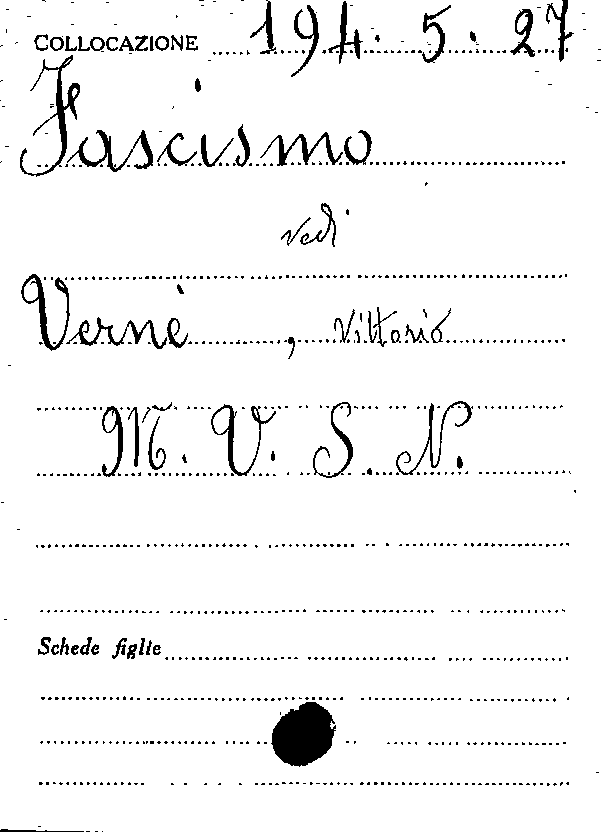 COLLOCAZIONE 194. 5. 27
Fascismo
vedi
Vernè, Vittorio
M. V. S. N.
Schede figlie